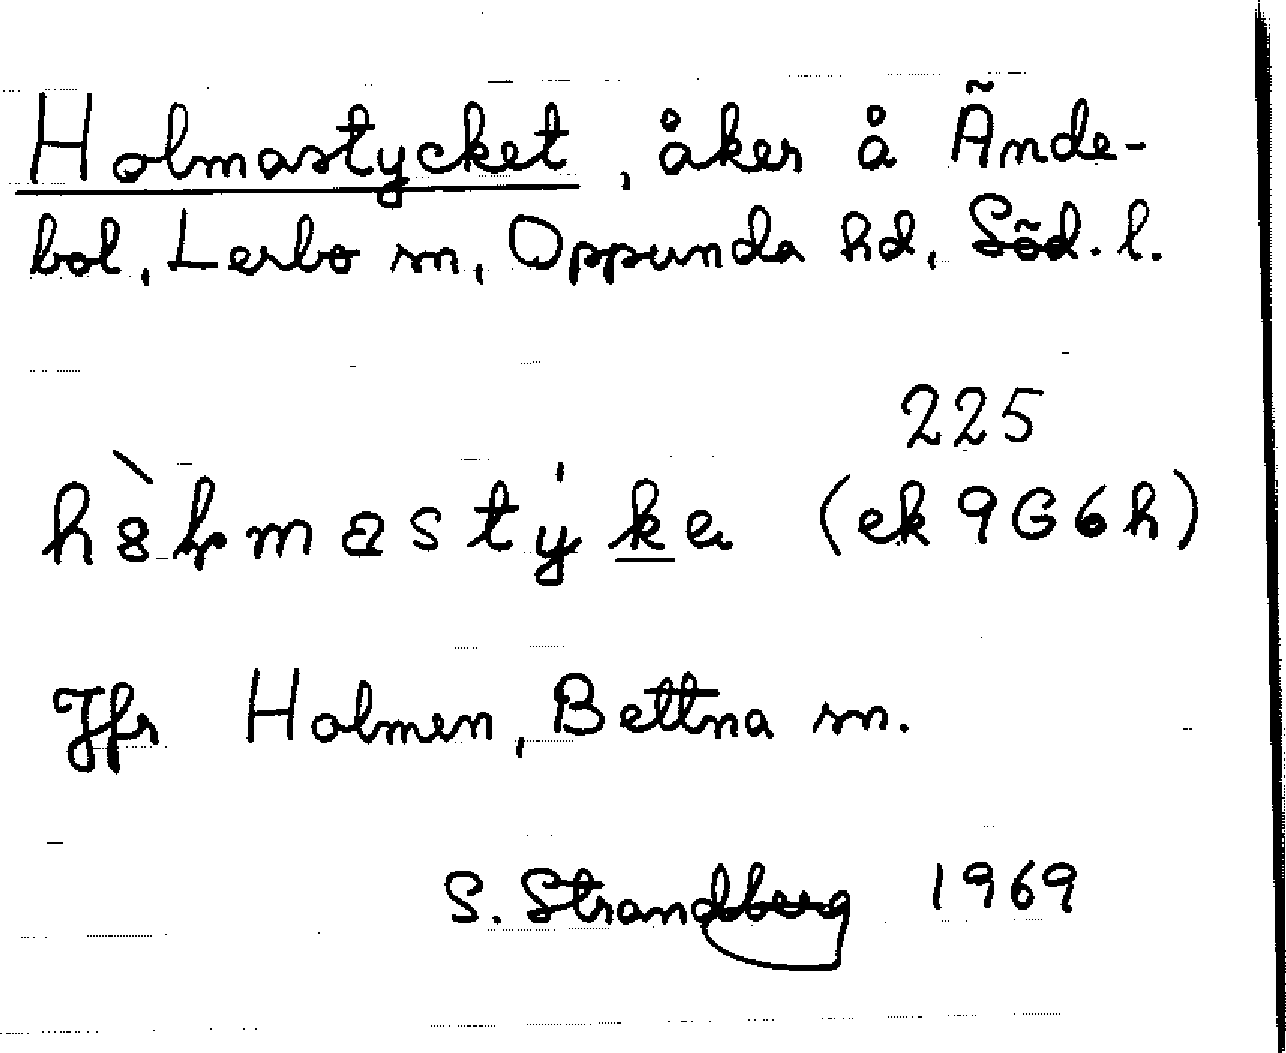 Holmastycket, åker å Ände-
bol, Lerbo sn, Oppunda hd, Söd. l.
225
(ek 9G6h)
Jfr Holmen, Bettna sn.
S. Strandberg 1969